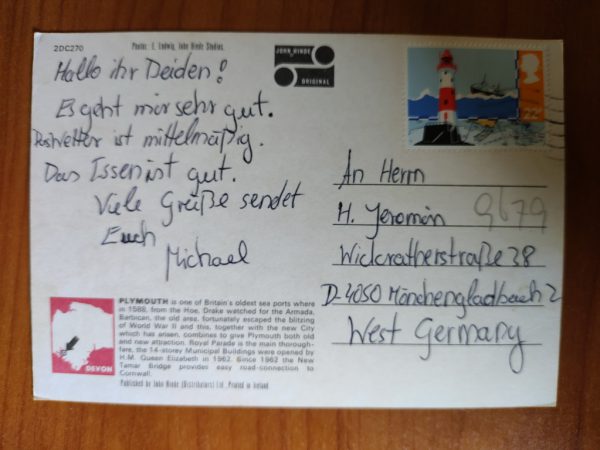 2DC270
Photos: E. Ludwig, John Hinde Studios.
JOHN HINDE
ORIGINAL
22P
Hallo ihr Beiden!
Es geht mir sehr gut.
Das Wetter ist mittelmäßig.
Das Essen ist gut.
Viele Grüße sendet
Euch
Michael
An Herrn
H. Jeromin
9679
Wickratherstraße 38
D-4050 Mönchengladbach 2
West Germany
PLYMOUTH is one of Britain's oldest sea ports where
in 1588, from the Hoe, Drake watched for the Armada.
Barbican, the old area, fortunately escaped the blitzing
of World War II and this, together with the new City
which has arisen, combines to give Plymouth both old
and new attraction. Royal Parade is the main thorough-
fare, the 14-storey Municipal Buildings were opened by
H.M. Queen Elizabeth in 1962. Since 1962 the New
Tamar Bridge provides easy road-connection to
Cornwall.
DEVON
Published by John Hinde (Distributors) Ltd., Printed in Ireland